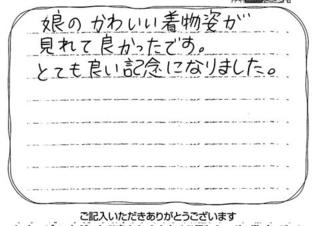 娘のかわいい着物姿が
見れて良かったです。
とても良い記念になりました。
ご記入いただきありがとうございます